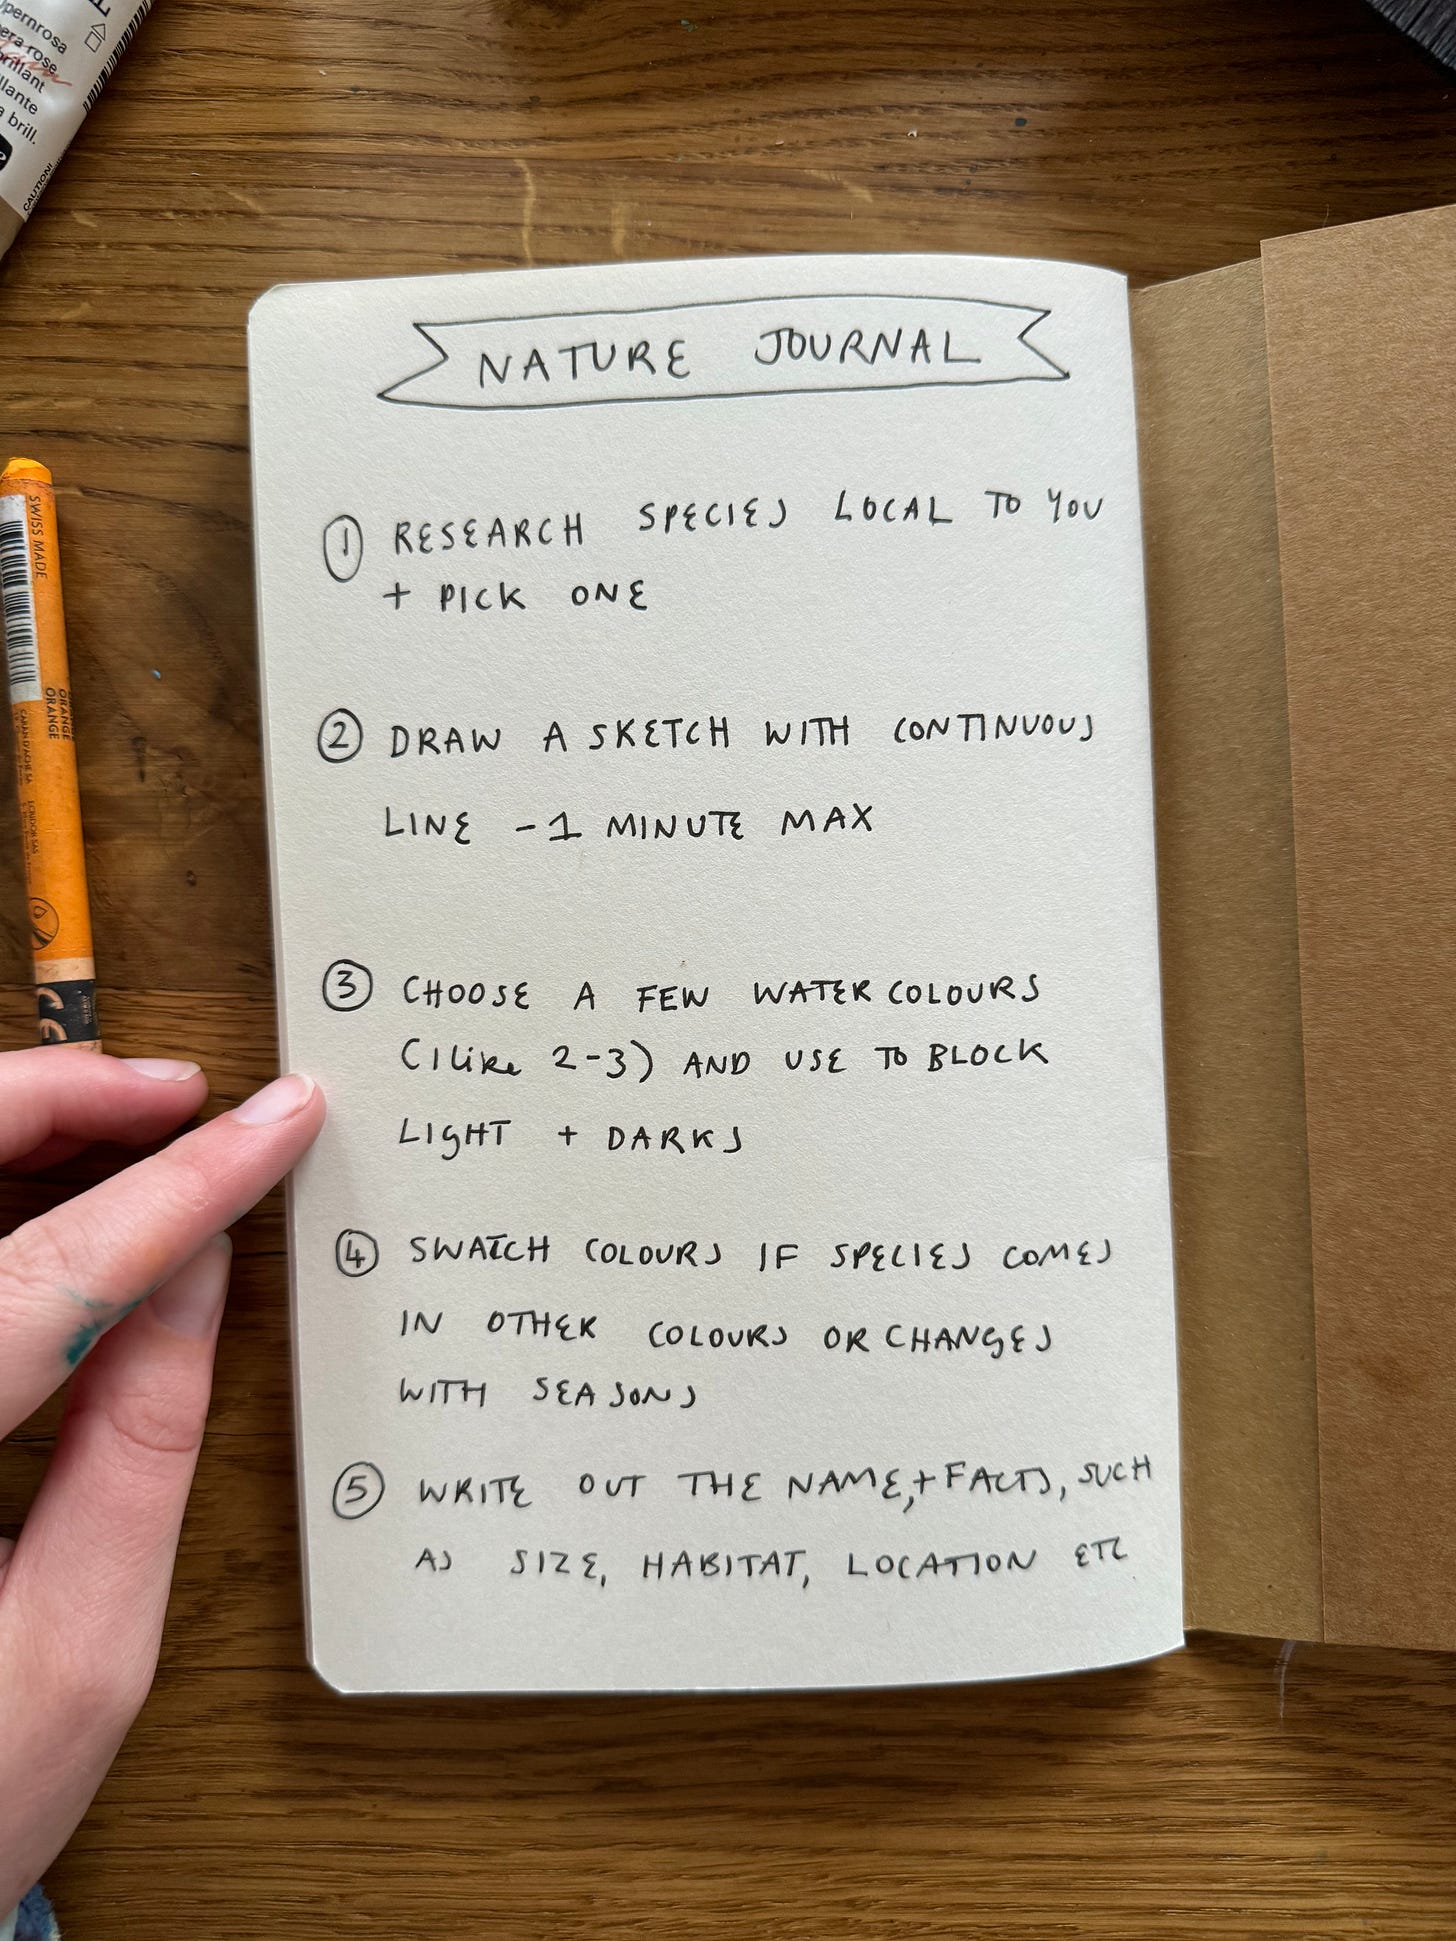 pernrosa
era rose
brillant
llante
a brill.
CAUTION!
SWISS MADE
ORANGE
ORANGE
CARAN D'ACHE SA
NATURE JOURNAL
① RESEARCH SPECIES LOCAL TO YOU
+ PICK ONE
② DRAW A SKETCH WITH CONTINUOUS
LINE - 1 MINUTE MAX
③ CHOOSE A FEW WATERCOLOURS
(I Like 2-3) AND USE TO BLOCK
LIGHT + DARKS
④ SWATCH COLOURS IF SPECIES COMES
IN OTHER COLOURS OR CHANGES
WITH SEASONS
⑤ WRITE OUT THE NAME,+ FACTS, SUCH
AS SIZE, HABITAT, LOCATION ETC